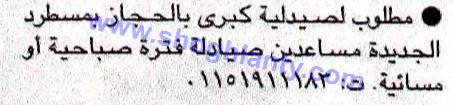 ● مطلوب لصيدلية كبرى بالحجاز بمسطرد
الجديدة مساعدين صيادلة فترة صباحية أو
مسائية. ت: ٠١١٥١٩١١١٨٢